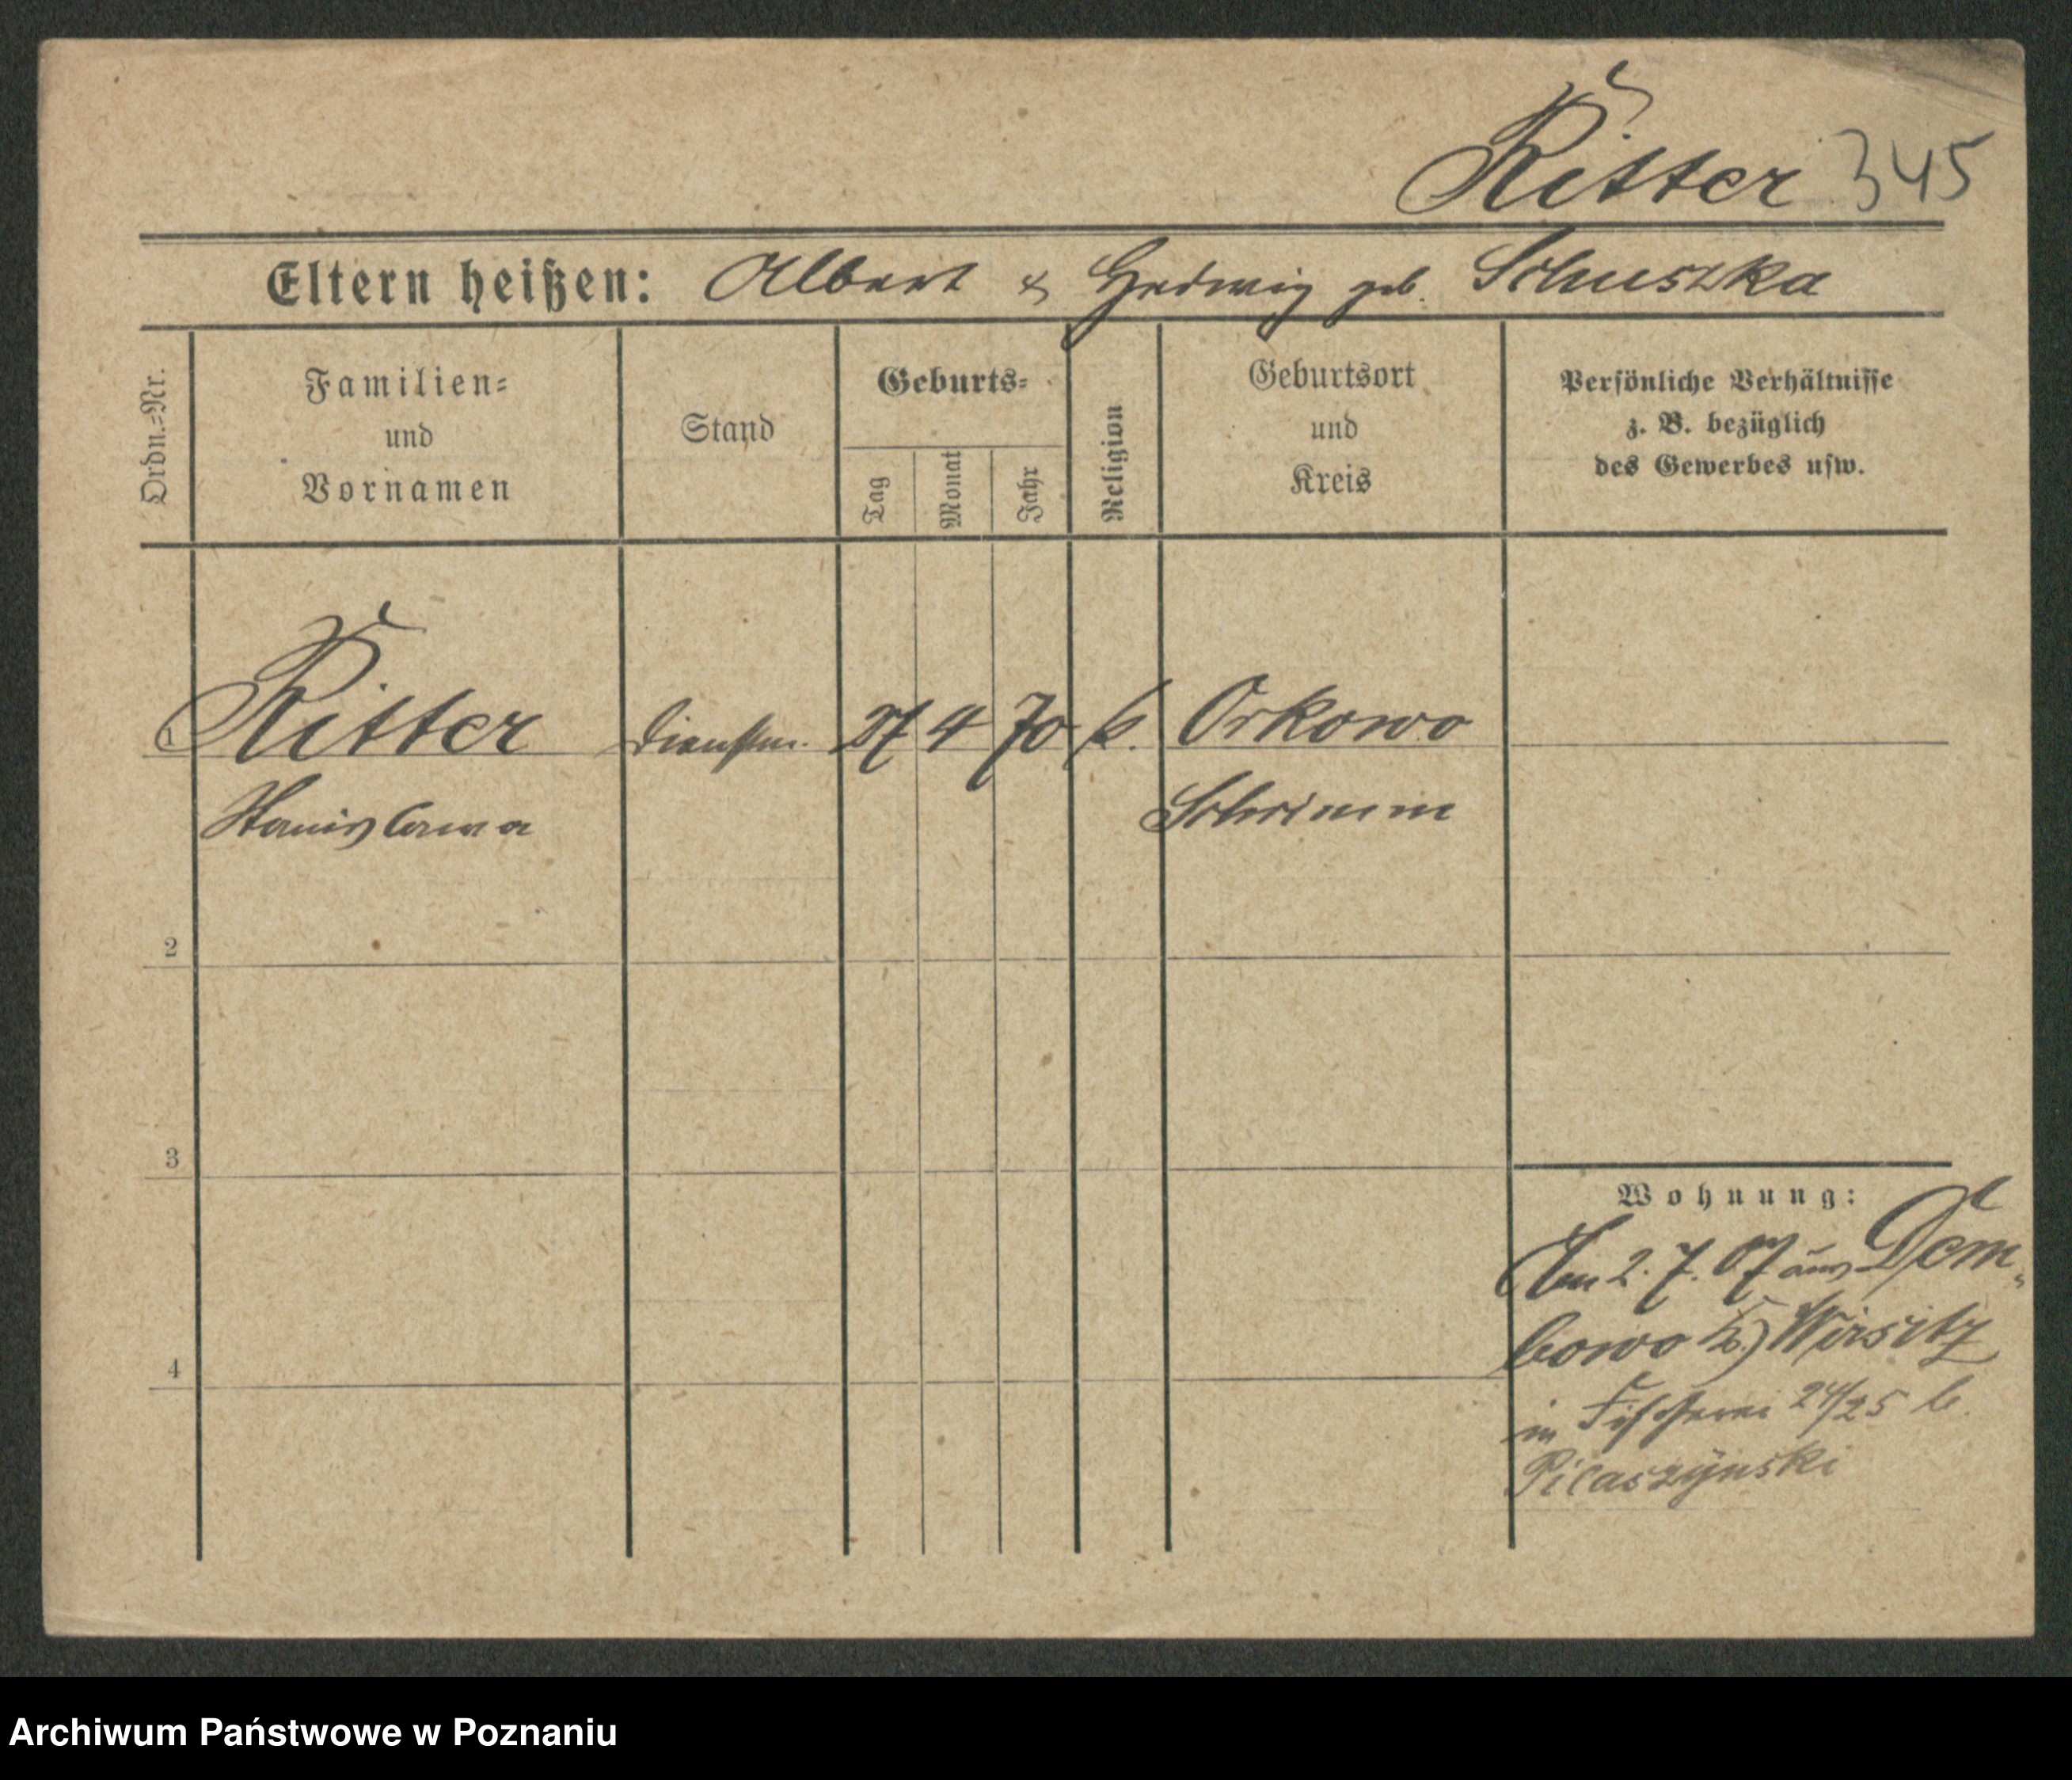 Ritter 345
Eltern heißen: Albert & Hedwig geb. Schuszka
Ordn.=Nr.
Familien=
und
Vornamen
Stand
Geburts=
Tag
Monat
Jahr
Religion
Geburtsort
und
Kreis
Persönliche Verhältnisse
z. B. bezüglich
des Gewerbes usw.
1 Ritter Dienstm. 27 4 70 k. Orkowo
Stanislawa Schrimm
2
3
Wohnung:
Am 2. 7. 07 aus Dem-
bowo Kr. Wirsitz
4
in Fischerei 24/25 b.
Pilaszynski
Archiwum Państwowe w Poznaniu